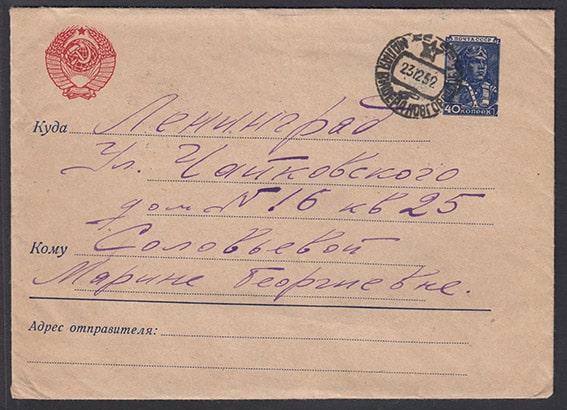 ПОЧТА СССР
23 12 52
40 КОПЕЕК
Куда Ленинград
Ул. Чайковского
дом N 16 кв 25
Кому Соловьевой
Марине Георгиевне.
Адрес отправителя: